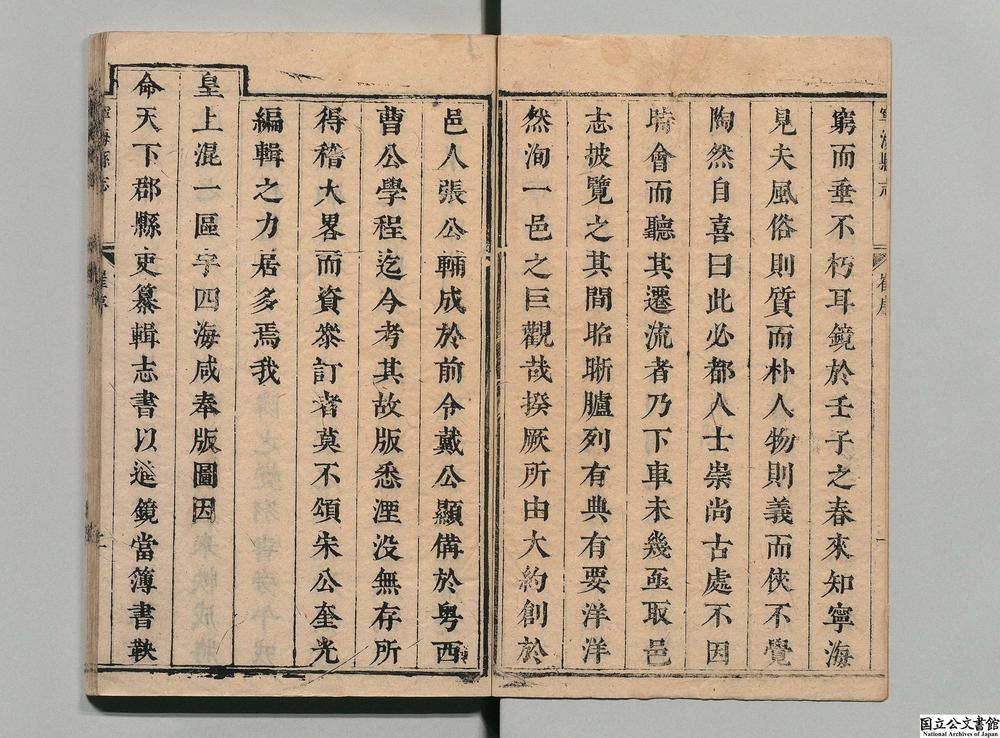 寧海縣志
崔序
窮而垂不朽耳鏡於壬子之春來知寧海
見夫風俗則質而朴人物則義而俠不覺
陶然自喜曰此必都人士崇尚古處不因
時會而聽其遷流者乃下車未幾亟取邑
志披覽之其間昭晰臚列有典有要洋洋
然洵一邑之巨觀哉揆厥所由大約創於
邑人張公輔成於前令戴公顯備於粵西
曹公學程迄今考其故版悉湮没無存所
得稽大畧而資叅訂者莫不頌朱公奎光
編輯之力居多焉我
皇上混一區宇四海咸奉版圖因
命天下郡縣吏纂輯志書以進鏡當簿書鞅
寧海縣志
崔序
国立公文書館
National Archives of Japan